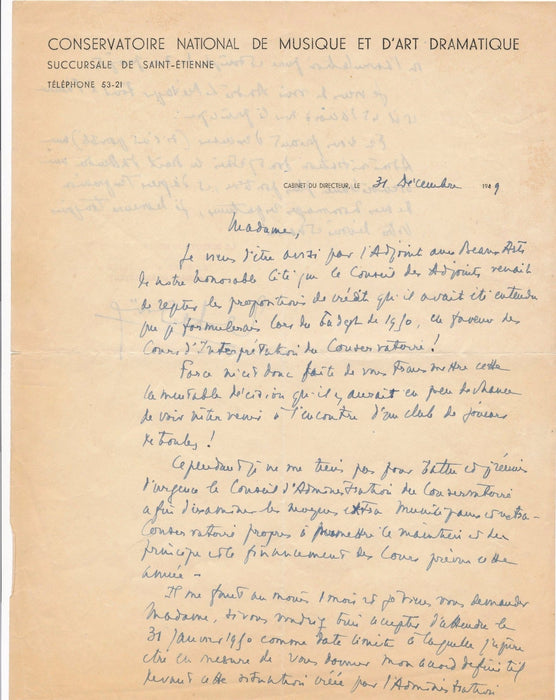 CONSERVATOIRE NATIONAL DE MUSIQUE ET D'ART DRAMATIQUE
SUCCURSALE DE SAINT-ÉTIENNE
TÉLÉPHONE 53-21
CABINET DU DIRECTEUR, LE 31 Décembre 1949
Madame,
Je viens d'être avisé par l'Adjoint aux Beaux Arts
de notre honorable Cité que le Conseil des Adjoints venait
de rejeter les propositions de crédit qu'il avait été entendu
que je formulerais lors du budget de 1950, en faveur des
Cours d'Interprétation du Conservatoire !
Force m'est donc faite de vous transmettre cette
lamentable décision qu'il y aurait eu peu de chance
de voir intervenir à l'encontre d'un club de joueurs
de boules !
Cependant je ne me tiens pas pour battu et je réunis
d'urgence le Conseil d'Administration du Conservatoire
afin d'examiner les moyens extra municipaux et extra-
Conservatoire propres à permettre le maintien et du
principe et le financement des Cours prévus cette
année -
Il me faut au moins 1 mois et je viens vous demander
Madame, si vous voudriez bien accepter d'attendre le
31 Janvier 1950 comme date limite à laquelle j'espère
être en mesure de vous donner mon accord définitif
devant cette situation créée par l'Administration